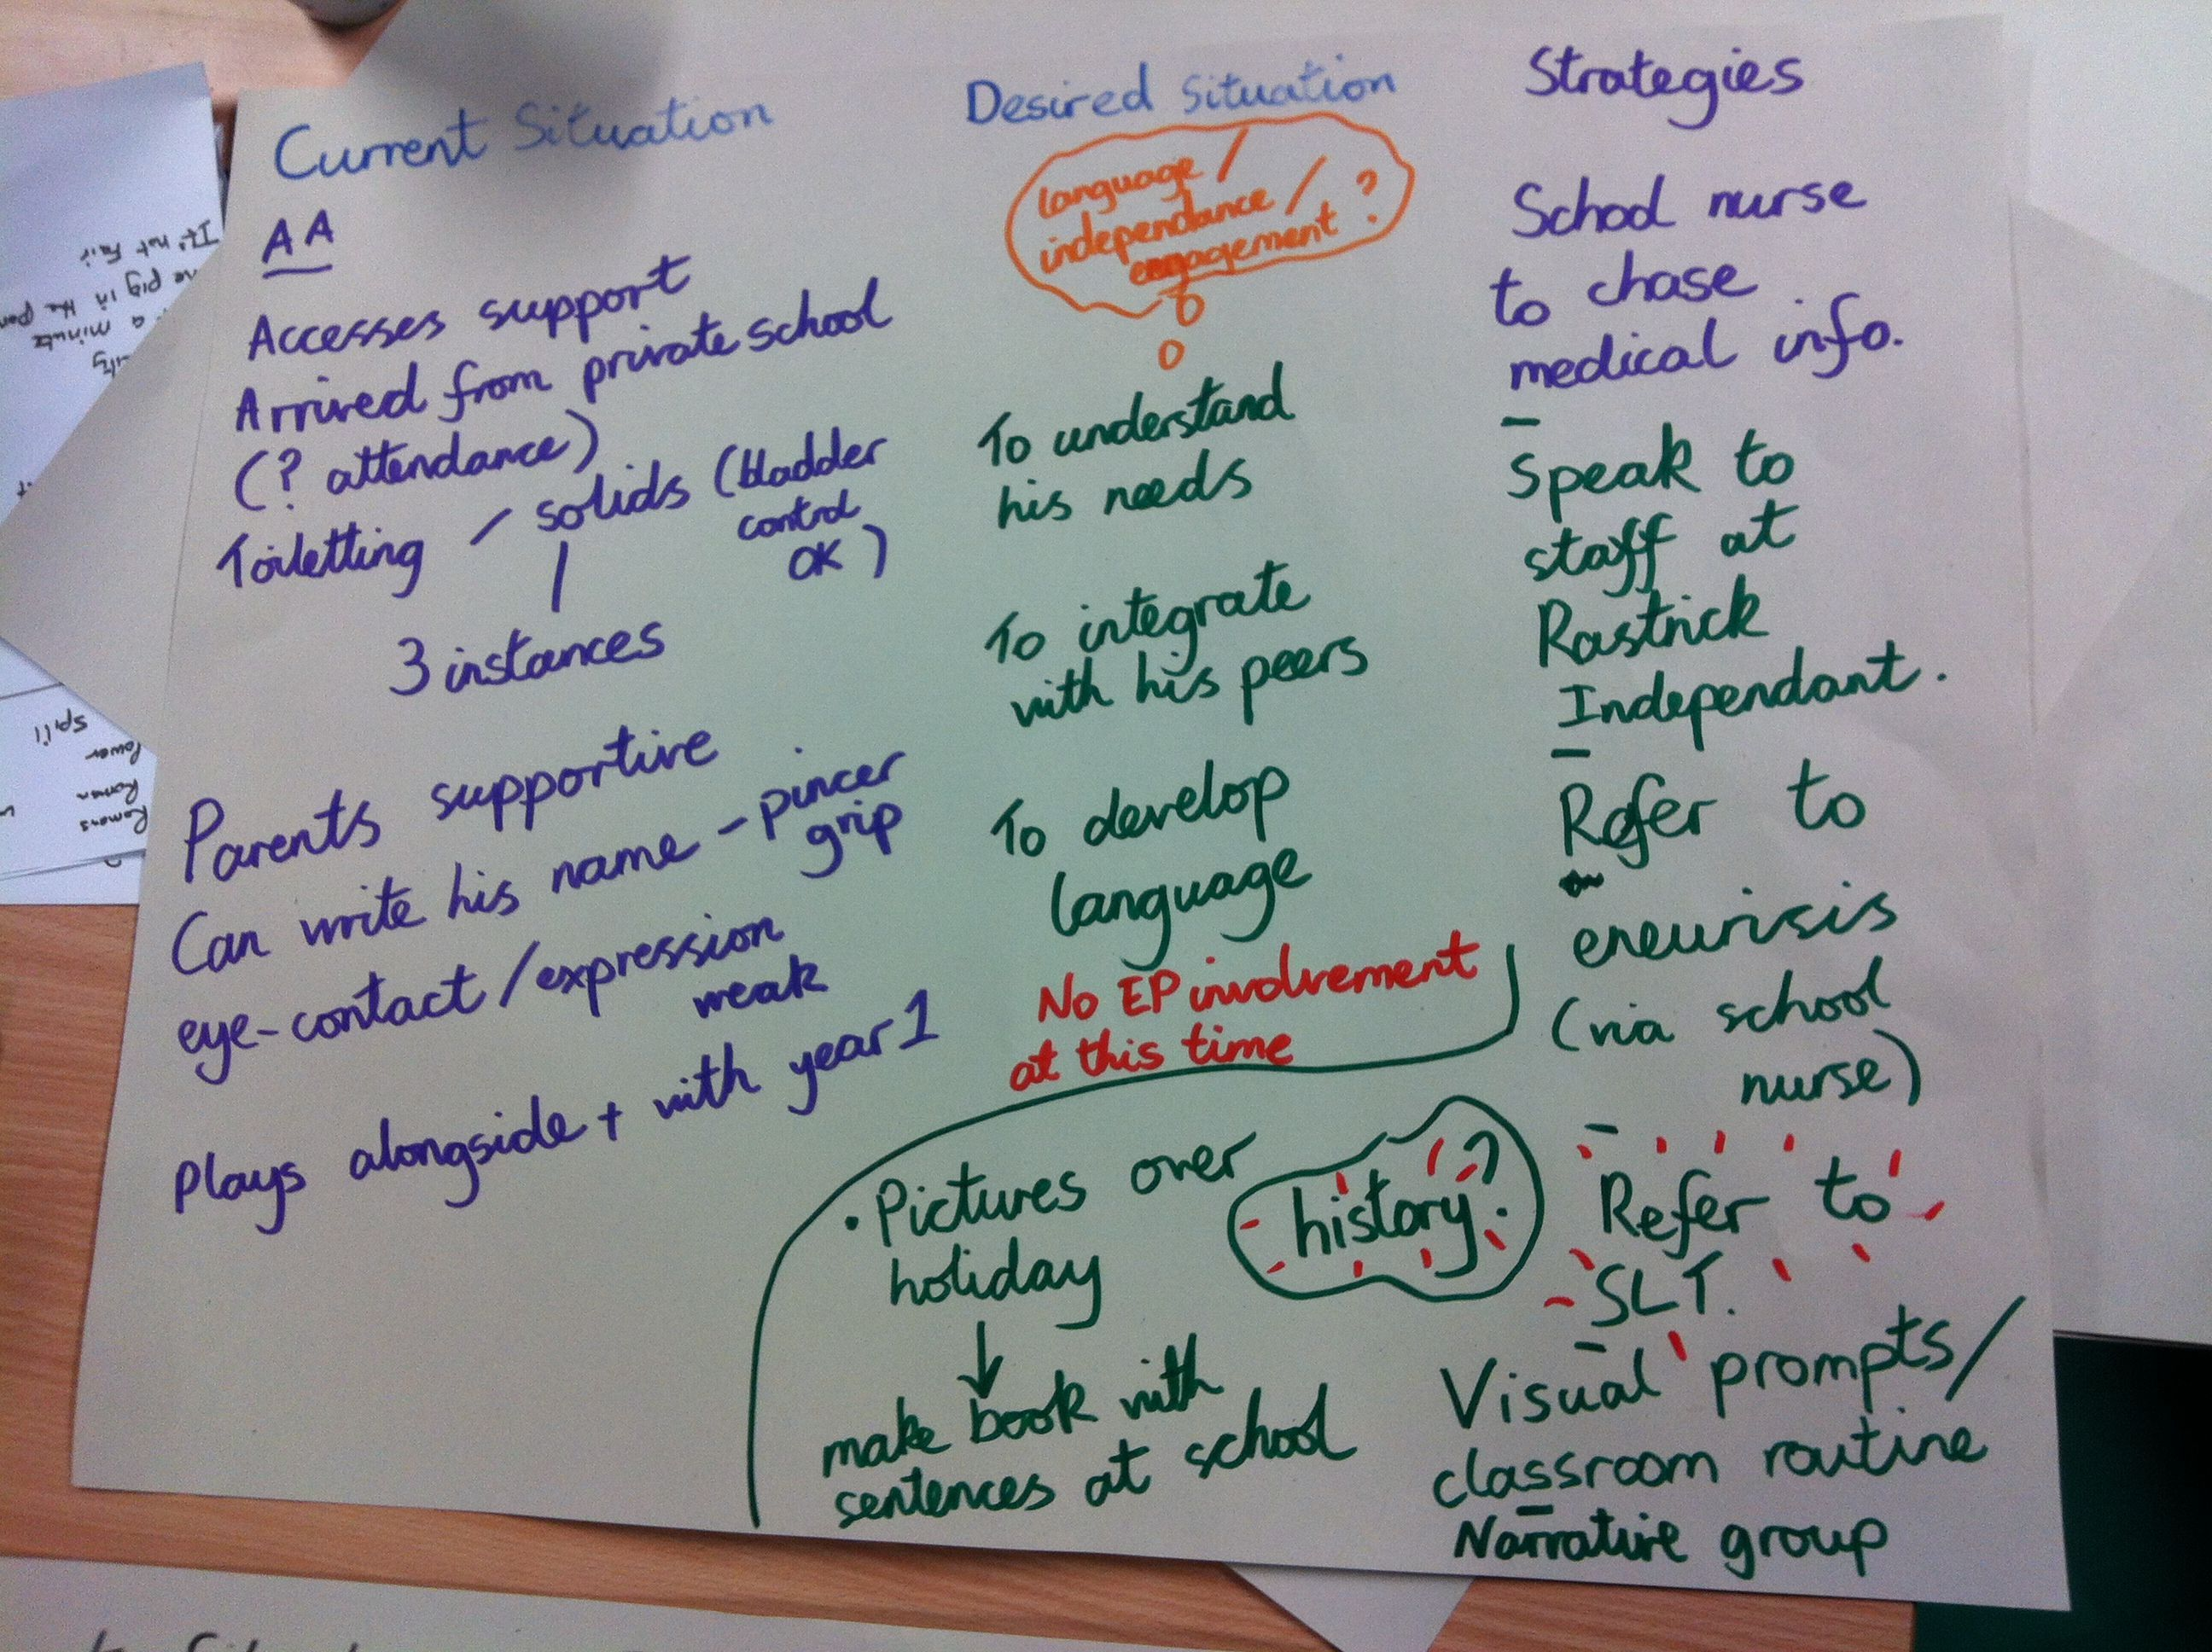 Current Situation
AA
Accesses support
Arrived from private school
(? attendance)
Toiletting - solids (bladder
control
OK)
3 instances
Parents supportive
Can write his name - pincer
grip
eye-contact/expression
weak
Plays alongside + with year 1
Desired Situation
language /
independance /
engagement ?
To understand
his needs
To integrate
with his peers
To develop
language
No EP involvement
at this time
• Pictures over
holiday
↓
make book with
sentences at school
history?
Strategies
School nurse
to chase
medical info.
-
Speak to
staff at
Rastrick
Independant.
-
Refer to
eneurisis
(via school
nurse)
-
Refer to
SLT.
-
Visual prompts/
classroom routine
-
Narrative group
It's not fair
pig in the
a minute
spill
Power
Roman
Romans